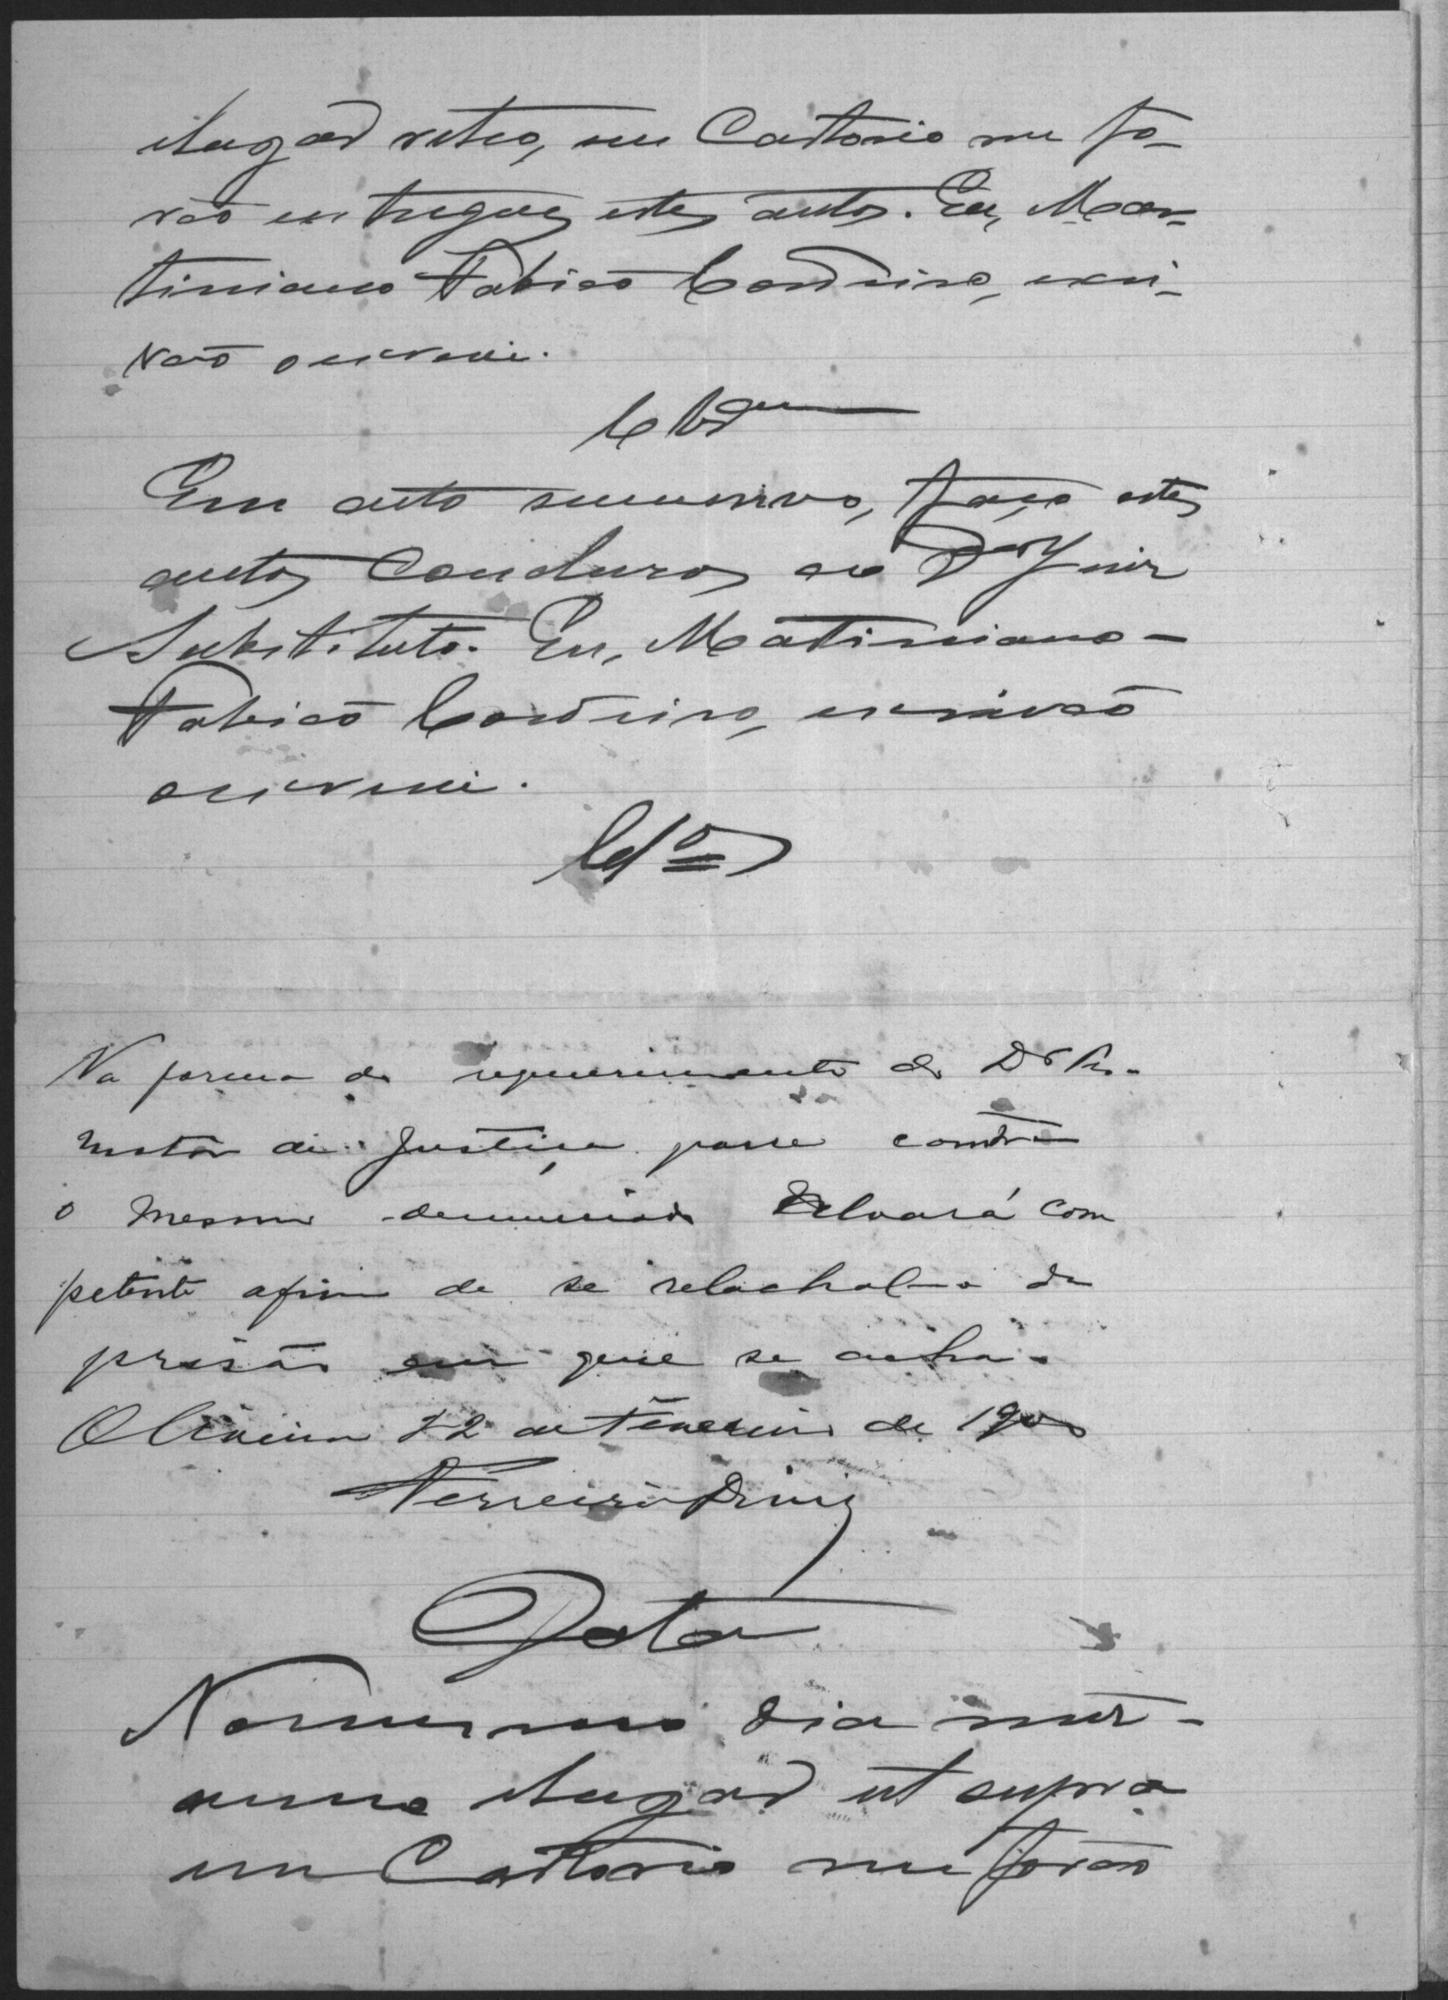 e lugar retro, em Cartorio me fo-
rão entregues estes autos. Eu, Mar-
timiano Fabião Cordeiro, escri-
vão o escrevi.
Clsam
Em acto successivo, faço estes
autos Conclusos ao Dor Juiz
Substituto. Eu, Matimiano
Fabião Cordeiro, escrivão
o escrevi.
Clsos
Na forma do requerimento do Dr Pro-
motor de Justiça passe contra
o mesmo denunciado Alvará com
petente afim de se relachal-o da
prisão em que se acha.
Oliveira 22 de Fevereiro de 1900
Ferreira Diniz
Data
No mesmo dia mez
anno e lugar ut supra
em Cartorio me forão